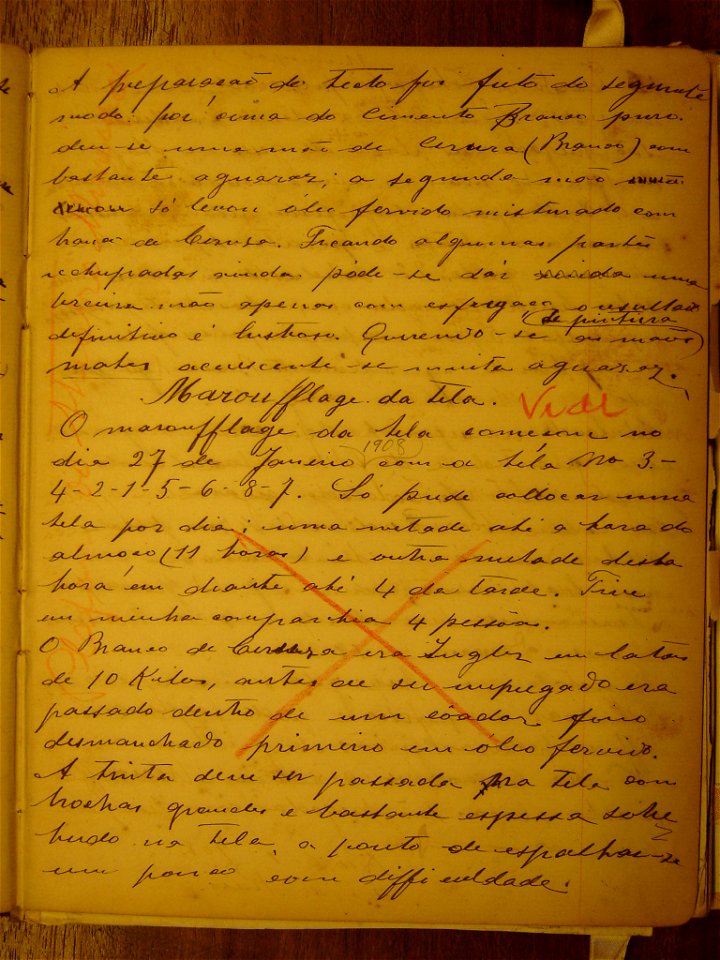 A preparação do tecto foi feito do seguinte
modo: por cima do Cimento Branco puro.
deu-se uma mão de Ceruza (Branco) com
bastante aguaraz; a segunda mão
só levou óleo fervido misturado com
Ceruza. Ficando algumas partes
rechupadas ainda póde-se dár uma
terceira mão apenas com
de pintura
definitivo é lustroso. Querendo-se as mãos
mates accrescente-se muita aguaraz.
Maroufflage da tela. Vide
O maroufflage da tela começou no
1908
dia 27 de Janeiro com a téla No 3.-
4-2-1-5-6-8-7. Só pude collocar uma
tela por dia; uma metade até a hora do
almoço (11 horas) e outra metade desta
hora em diante até 4 da tarde. Tive
em minha companhia 4 pessôas.
O Branco de Ceruza era Inglez em latas
de 10 Kilos, antes de ser empregado era
passado dentro de um côador fino
desmanchado primeiro em óleo fervido.
A tinta deve ser passada na tela com
brochas grandes e bastante espessa sobre
tudo na tela, a ponto de espalhar-se
um pouco com difficuldade.